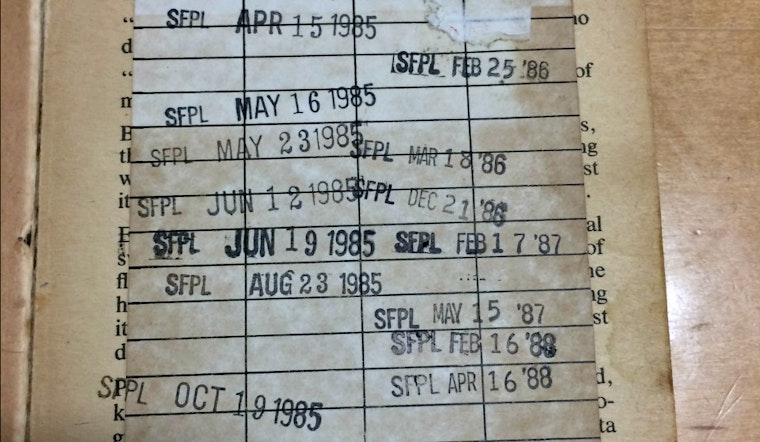 SFPL APR 15 1985
SFPL FEB 25 '86
SFPL MAY 16 1985
SFPL MAY 23 1985
SFPL MAR 18 '86
SFPL JUN 12 1985
SFPL DEC 21 '86
SFPL JUN 19 1985
SFPL FEB 17 '87
SFPL AUG 23 1985
SFPL MAY 15 '87
SFPL FEB 16 '88
SFPL APR 16 '88
SFPL OCT 19 1985
of
s,
st
al
of
st
d,
ta